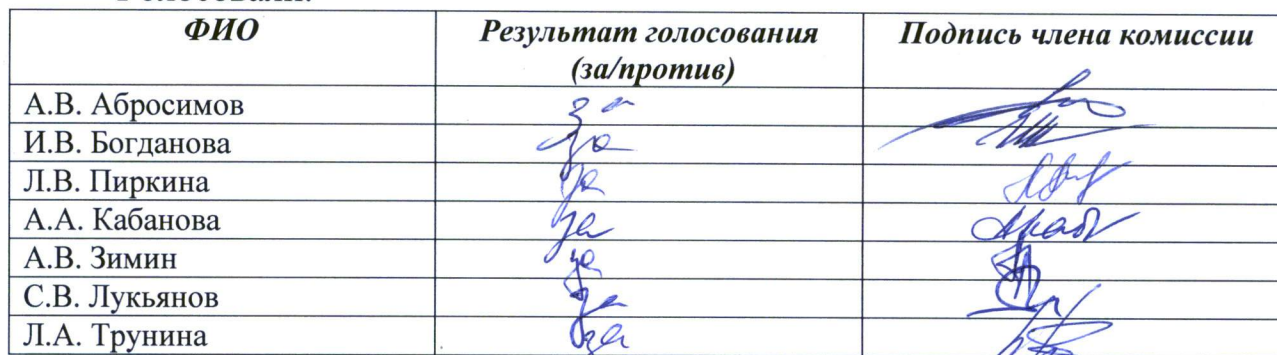 ФИО Результат голосования Подпись члена комиссии
(за/против)
А.В. Абросимов за
И.В. Богданова за
Л.В. Пиркина за
А.А. Кабанова за
А.В. Зимин за
С.В. Лукьянов за
Л.А. Трунина за